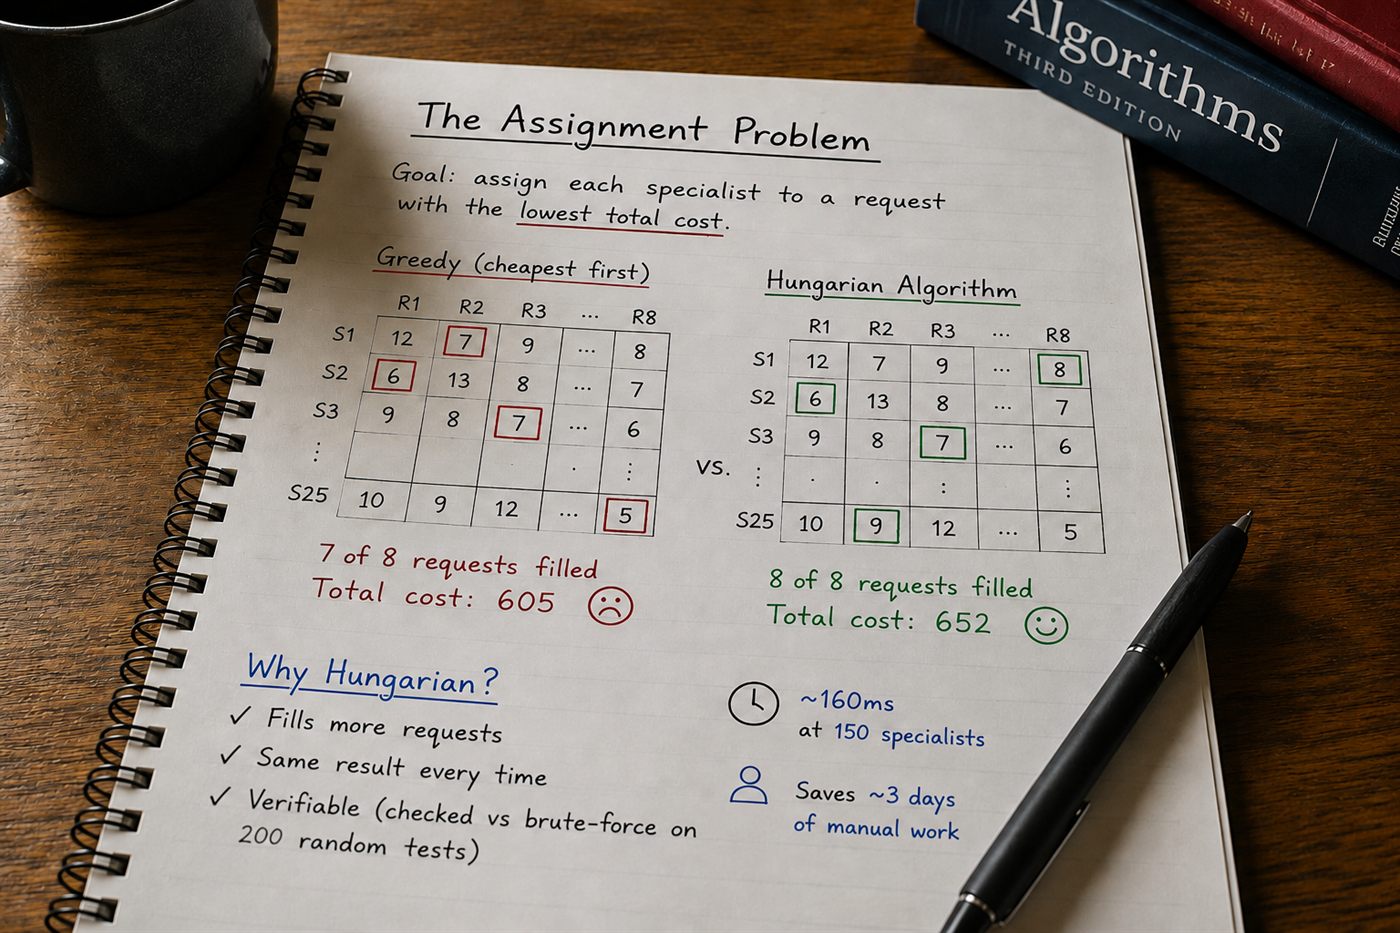 Algorithms
THIRD EDITION
The Assignment Problem
Goal: assign each specialist to a request
with the lowest total cost.
Greedy (cheapest first)
R1 R2 R3 ... R8
S1 12 7 9 ... 8
S2 6 13 8 ... 7
S3 9 8 7 ... 6
⋮ . ⋮
S25 10 9 12 ... 5
7 of 8 requests filled
Total cost: 605
vs.
Hungarian Algorithm
R1 R2 R3 ... R8
S1 12 7 9 ... 8
S2 6 13 8 ... 7
S3 9 8 7 ... 6
⋮ . . ⋮ ⋮
S25 10 9 12 ... 5
8 of 8 requests filled
Total cost: 652
Why Hungarian?
✓ Fills more requests
✓ Same result every time
✓ Verifiable (checked vs brute-force on
200 random tests)
~160ms
at 150 specialists
Saves ~3 days
of manual work